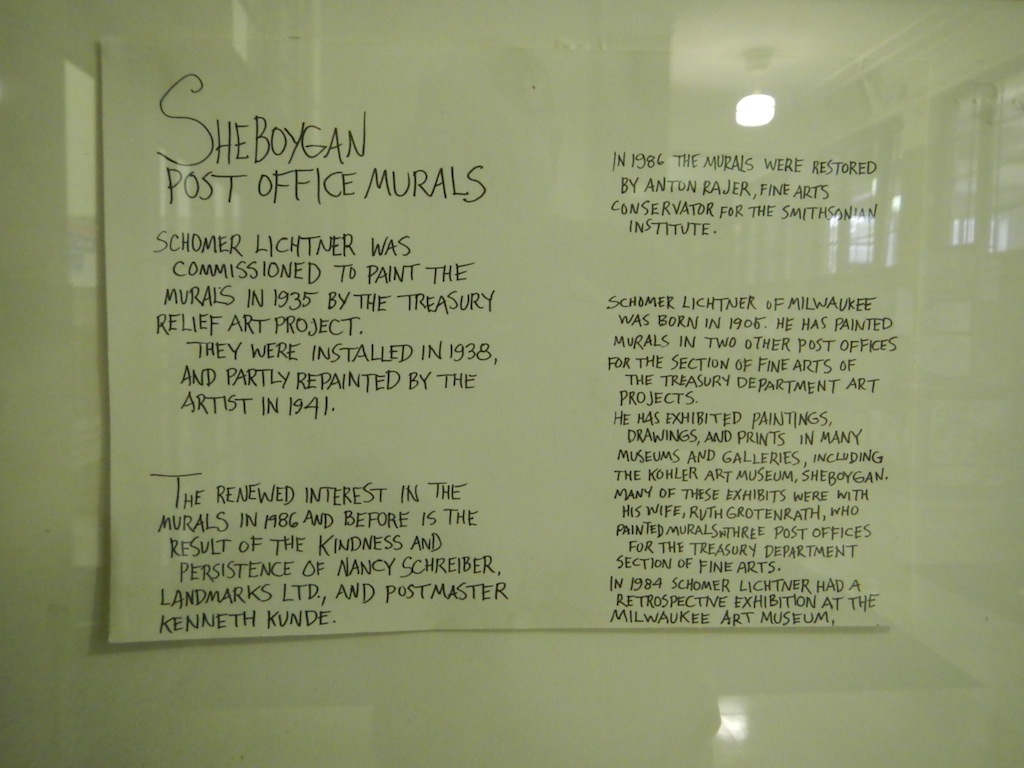 SHEBOYGAN
POST OFFICE MURALS
SCHOMER LICHTNER WAS
COMMISSIONED TO PAINT THE
MURALS IN 1935 BY THE TREASURY
RELIEF ART PROJECT.
THEY WERE INSTALLED IN 1938,
AND PARTLY REPAINTED BY THE
ARTIST IN 1941.
THE RENEWED INTEREST IN THE
MURALS IN 1986 AND BEFORE IS THE
RESULT OF THE KINDNESS AND
PERSISTENCE OF NANCY SCHREIBER,
LANDMARKS LTD., AND POSTMASTER
KENNETH KUNDE.
IN 1986 THE MURALS WERE RESTORED
BY ANTON RAJER, FINE ARTS
CONSERVATOR FOR THE SMITHSONIAN
INSTITUTE.
SCHOMER LICHTNER OF MILWAUKEE
WAS BORN IN 1905. HE HAS PAINTED
MURALS IN TWO OTHER POST OFFICES
FOR THE SECTION OF FINE ARTS OF
THE TREASURY DEPARTMENT ART
PROJECTS.
HE HAS EXHIBITED PAINTINGS,
DRAWINGS, AND PRINTS IN MANY
MUSEUMS AND GALLERIES, INCLUDING
THE KOHLER ART MUSEUM, SHEBOYGAN.
MANY OF THESE EXHIBITS WERE WITH
HIS WIFE, RUTH GROTENRATH, WHO
PAINTED MURALS IN THREE POST OFFICES
FOR THE TREASURY DEPARTMENT
SECTION OF FINE ARTS.
IN 1984 SCHOMER LICHTNER HAD A
RETROSPECTIVE EXHIBITION AT THE
MILWAUKEE ART MUSEUM,